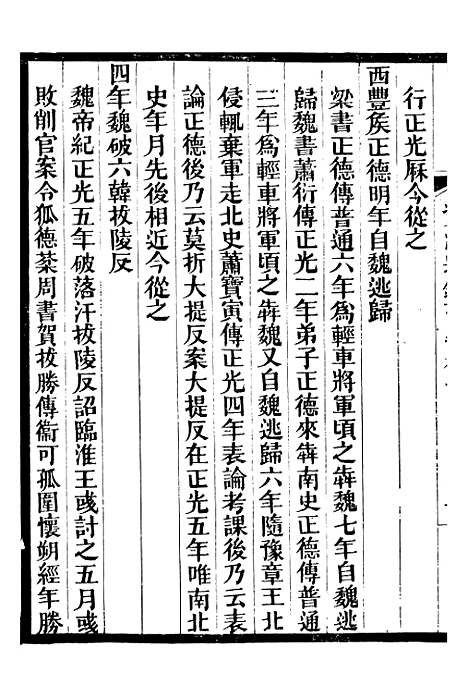 行正光厤今從之
西豐矦正德明年自魏逃歸
梁書正德傳普通六年爲輕車將軍頃之犇魏七年自魏逃
歸魏書蕭衍傳正光二年弟子正德來犇南史正德傳普通
三年爲輕車將軍頃之犇魏又自魏逃歸六年隨豫章王北
侵輒棄軍走北史蕭寶寅傳正光四年表論考課後乃云表
論正德後乃云莫折大提反案大提反在正光五年唯南北
史年月先後相近今從之
四年魏破六韓拔陵反
魏帝紀正光五年破落汗拔陵反詔臨淮王彧討之五月彧
敗削官案令狐德棻周書賀拔勝傳衞可孤圍懷朔經年勝